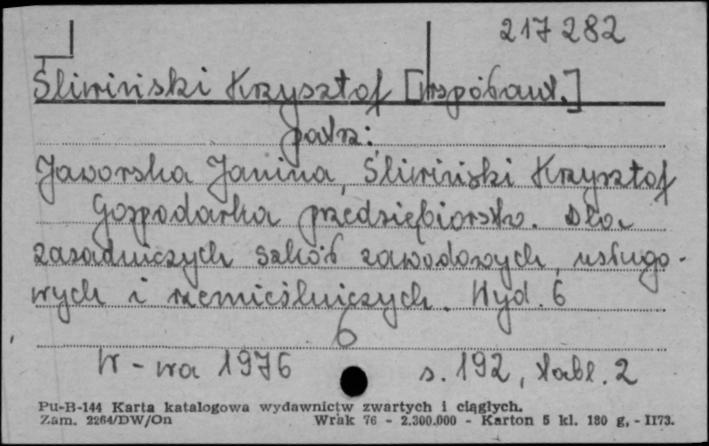 217 282
Śliwiński Krzysztof [współaut.]
patrz:
Jaworska Janina, Śliwiński Krzysztof
Gospodarka przedsiębiorstw. Dla
zasadniczych szkół zawodowych, usługo-
wych i rzemieślniczych. Wyd. 6
6
W-wa 1976 s. 192, tabl. 2
Pu-B-144 Karta katalogowa wydawnictw zwartych i ciągłych.
Zam. 2264/DW/On Wrak 76 - 2.300.000 - Karton 5 kl. 180 g, - II73.